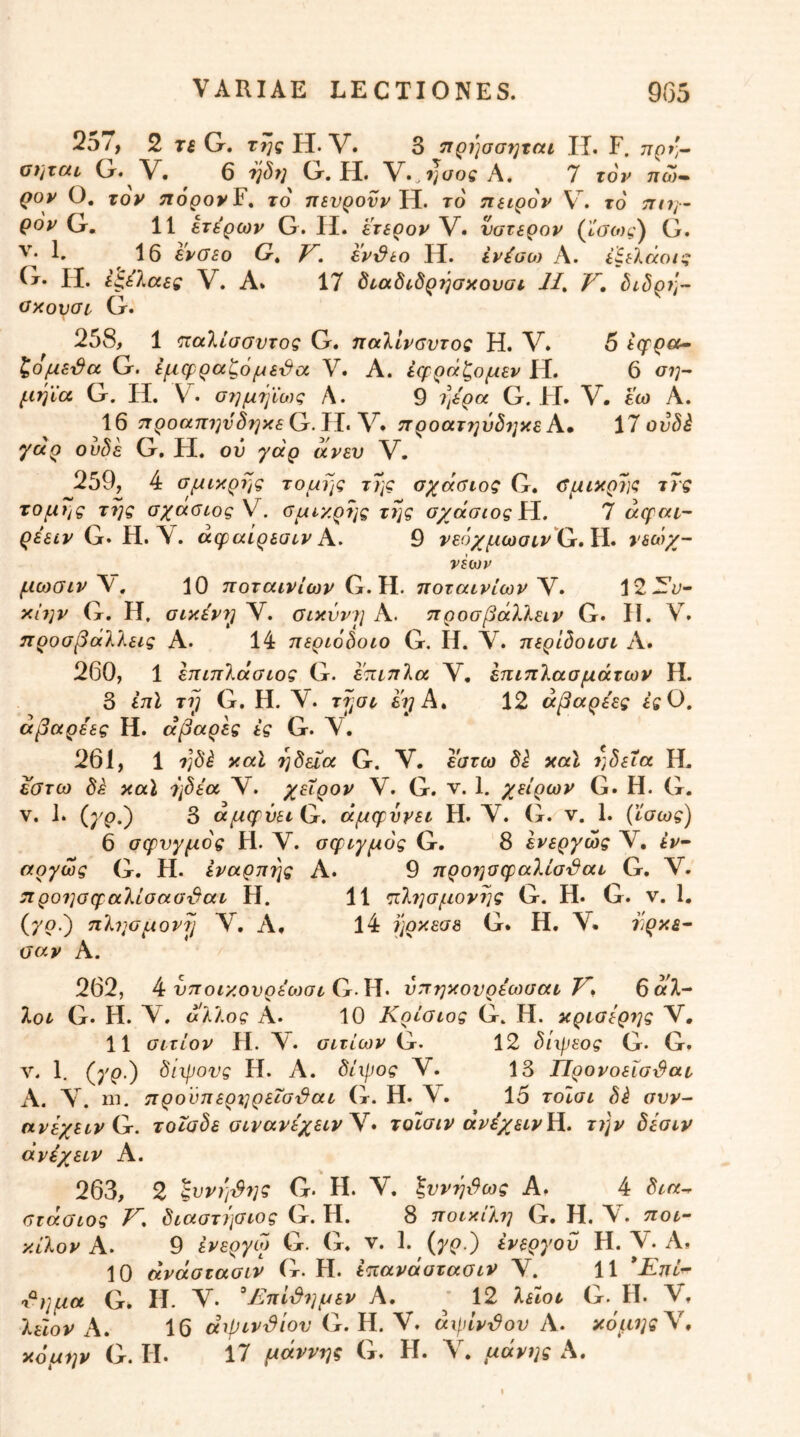 VARIAE LECTIONES. 965
257, 2 τε G. τῆς H. V. 3 πρήσσηται H. F. πρή-
σηται G. V. 6 ἤδη G. H. V. ἧσος A. 7 τὸν πῶ-
ρον O. τὸν πόρον F. τὸ πευροῦν H. τὸ πειρὸν V. τὸ πιη-
ρὸν G. 11 ἑτέρων G. H. ἕτερον V. ὕστερον (ἴσως) G.
v. 1. 16 ἔνσεο G. V. ἔνθεο H. ἐνέσω A. ἐξελάοις
G. H. ἐξέλαες V. A. 17 διαδιδρήσκουσι H. V. διδρή-
σκουσι G.
258, 1 παλίσσυτος G. παλίνσυτος H. V. 5 ἐφρα-
ζόμεθα G. ἐμφραζόμεθα V. A. ἐφράζομεν H. 6 ση-
μήϊα G. H. V. σημηΐως A. 9 ἠέρα G. H. V. ἔω A.
16 προαπηύδηκε G. H. V. προατηύδηκε A. 17 οὐδὲ
γὰρ οὐδὲ G. H. οὐ γὰρ ἄνευ V.
259, 4 σμικρῆς τομῆς τῆς σχάσιος G. σμικρῆς τῆς
τομῆς τῆς σχάσιος V. σμικρῆς τῆς σχάσιος H. 7 ἀφαι-
ρέειν G. H. V. ἀφαίρεσιν A. 9 νεόχμωσιν G. H. νεώχ-
νέων
μωσιν V. 10 ποταινίων G. H. ποταινίων V. 12 Συ-
κίην G. H. σικένη V. σικύνη A. προσβάλλειν G. H. V.
προσβάλλεις A. 14 περιόδοιο G. H. V. περίδοισι A.
260, 1 ἐπιπλάσιος G. ἔπιπλα V. ἐπιπλασμάτων H.
3 ἐπὶ τῇ G. H. V. τῇσι ἔῃ A. 12 ἀβαρέες ἐς O.
ἀβαρέες H. ἀβαρὲς ἐς G. V.
261, 1 ἠδὲ καὶ ἡδεῖα G. V. ἔστω δὲ καὶ ἡδεῖα H.
ἔστω δὲ καὶ ἡδέα V. χεῖρον V. G. v. 1. χείρων G. H. G.
v. 1. (γρ.) 3 ἀμφύει G. ἀμφύνει H. V. G. v. 1. (ἴσως)
6 σφυγμὸς H. V. σφιγμὸς G. 8 ἐνεργῶς V. ἐν-
αργῶς G. H. ἐναρπῆς A. 9 προησφαλίσθαι G. V.
προησφαλίσασθαι H. 11 πλησμονῆς G. H. G. v. 1.
(γρ.) πλησμονῇ V. A. 14 ἤρκεσε G. H. V. ἤρκε-
σαν A.
262, 4 ὑποικουρέωσι G. H. ὑπηκουρέωσαι V. 6 ἄλ-
λοι G. H. V. ἄλλος A. 10 Κρίσιος G. H. κρισέρης V.
11 σιτίον H. V. σιτίων G. 12 δίψεος G. G.
v. 1. (γρ.) δίψους H. A. δίψος V. 13 Προνοεῖσθαι
A. V. m. προϋπερηρεῖσθαι G. H. V. 15 τοῖσι δὲ συν-
ανέχειν G. τοῖσδε σινανέχειν V. τοῖσιν ἀνέχειν H. τὴν δέσιν
ἀνέχειν A.
263, 2 ξυνήθης G. H. V. ξυνήθως A. 4 δια-
στάσιος V. διαστήσιος G. H. 8 ποικίλη G. H. V. ποι-
κίλον A. 9 ἐνεργῷ G. G. v. 1. (γρ.) ἐνεργοῦ H. V. A.
10 ἀνάστασιν G. H. ἐπανάστασιν V. 11 Ἐπί-
θημα G. H. V. Ἐπίθημεν A. 12 λεῖοι G. H. V.
λεῖον A. 16 ἀψινθίου G. H. V. ἀψίνθου A. κόμης V.
κόμην G. H. 17 μάννης G. H. V. μάνης A.